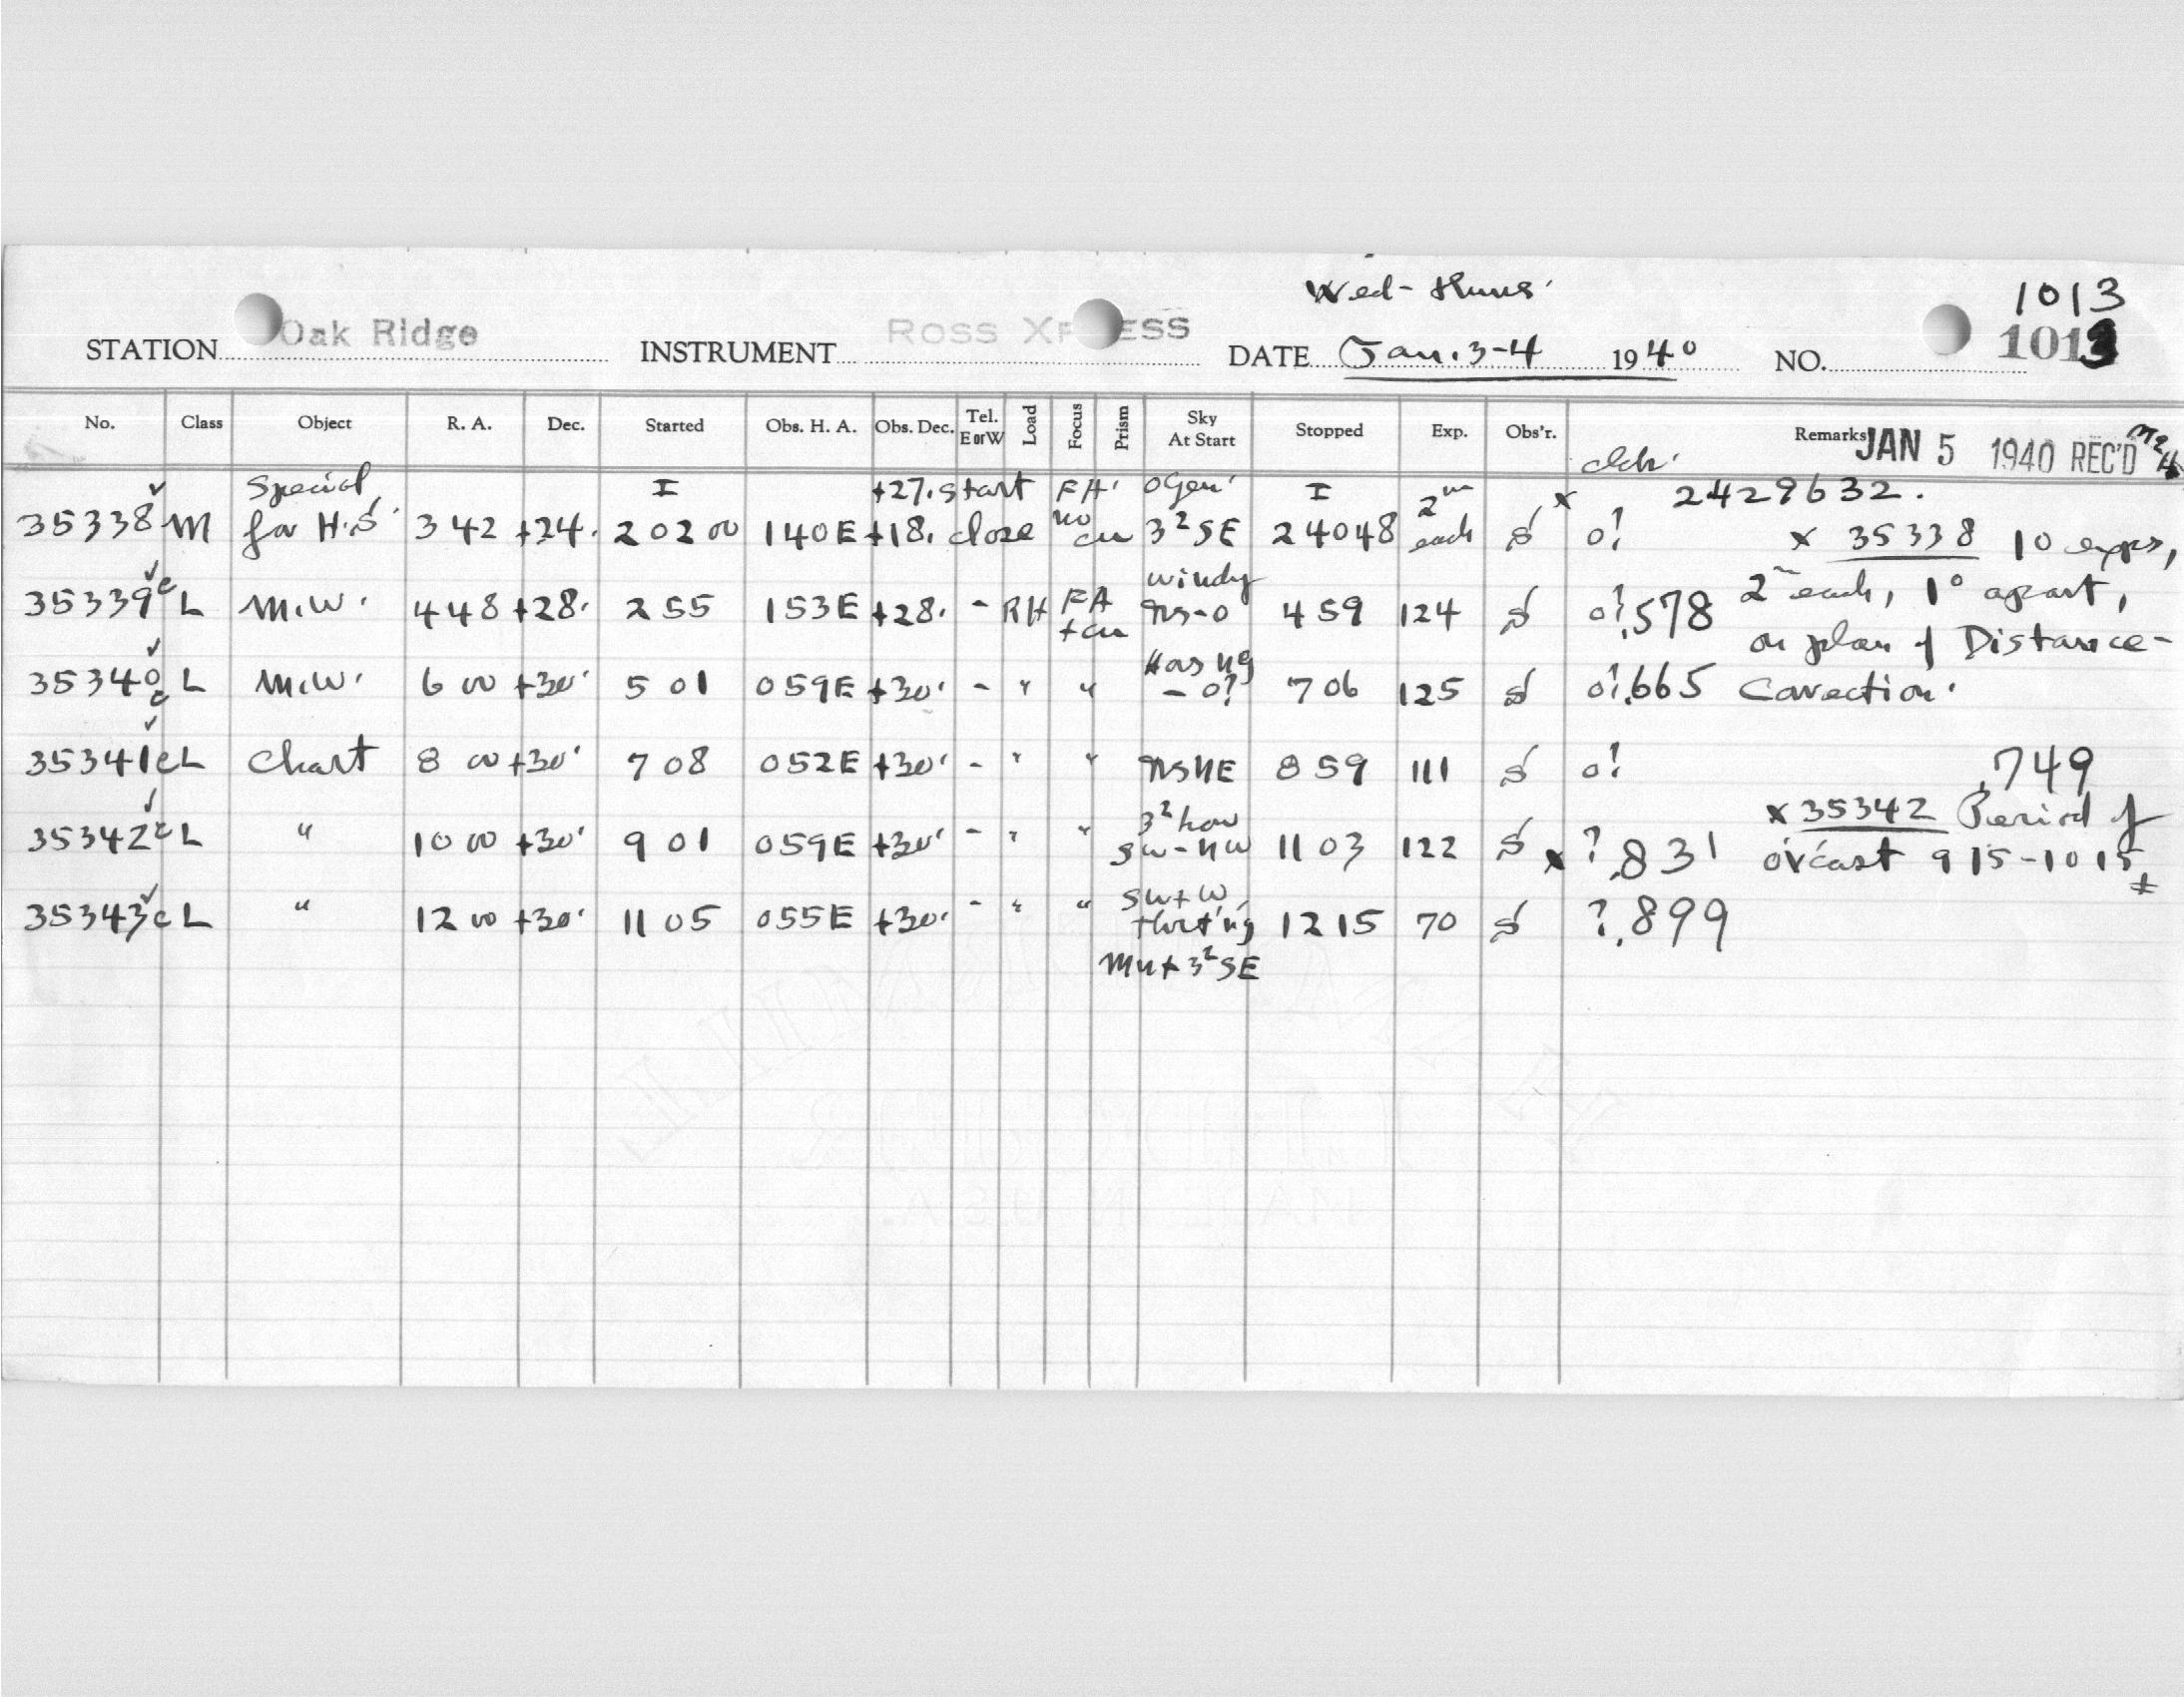 Wed - Thurs.
1013
STATION Oak Ridge INSTRUMENT ROSS XPRESS DATE Jan. 3-4 1940 NO. 1013
No. Class Object R. A. Dec. Started Obs. H. A. Obs. Dec. Tel. E or W Load Focus Prism Sky At Start Stopped Exp. Obs'r. Remarks JAN 5 1940 REC'D
Special I +27. start FA. I 2m x 2429632.
35338 M for H.S. 3 42 +24. 2 02 00 1 40 E +18. close no cu 3² SE 2 40 48 each S o? x 35338 10 exps,
windy 2m each, 1° apart,
35339 c L M.W. 4 48 +28. 2 55 1 53 E +28. - RH FA + cu ns-o 4 59 124 S o? .578
on plan of Distance-
35340 c L M.W. 6 00 +30. 5 01 0 59 E +30. - " " - o? 7 06 125 S o? .665 Correction.
35341 c L Chart 8 00 +30. 7 08 0 52 E +30. - " " ns NE 8 59 111 S o? .749
3² low x 35342 Period of
35342 c L " 10 00 +30. 9 01 0 59 E +30. - " " SW-NW 11 03 122 S x ? .831 ov'cast 9 15-10 15 ±
SW + W,
35343 c L " 12 00 +30. 11 05 0 55 E +30. - " " 12 15 70 S ? .899
Mn + 3² SE